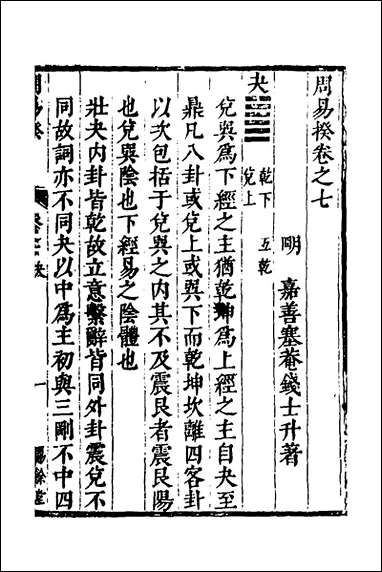 周易揆卷之七
明 嘉善塞菴錢士升著
夬 乾下 兌上 互乾
兌與爲下經之主猶乾坤爲上經之主自夬至
鼎凡八卦或兌上或與下而乾坤坎離四客卦
以次包括于兌與之內其不及震艮者震艮陽
也兌與陰也下經易之陰體也
壯夬內卦皆乾故立意繫辭皆同外卦震兌不
同故詞亦不同夬以中爲主初與三剛不中四
周易揆
一
賜餘堂